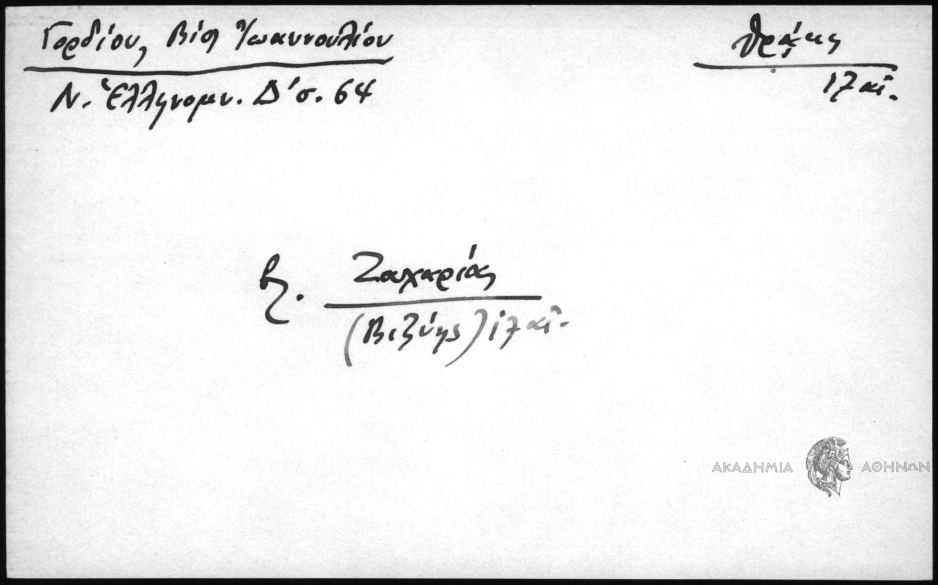 Γορδίου, Βίος Ἰωαννουλίου
Ν. Ἑλληνομν. Δ' σ. 64
Θράκης
17 αἰ.
βλ. Ζαχαρίας
(Βιζύης) 17 αἰ.
ΑΚΑΔΗΜΙΑ ΑΘΗΝΩΝ